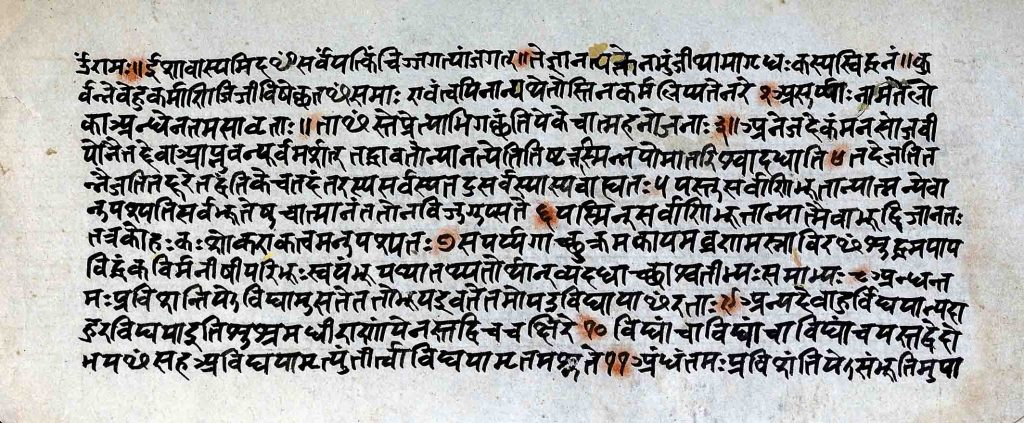 ॐरामः॥ईशावास्यमिदꣳसर्वंयत्किंचिज्जगत्यांजगत्॥तेन त्यक्तेनभुंजीथामागृधःकस्यस्विद्धनं॥कु
र्वन्नेवेहकर्माणिजिजीविषेच्छतꣳसमाः एवंत्वयिनान्यथेतोस्तिनकर्मलिप्यतेनरे २असूर्य्याःनामतेलो
काअन्धेनतमसावृताः॥ताꣳस्तेप्रेत्याभिगछंतियेकेचात्महनोजनाः३॥अनेजदेकंमनसोजवी
योनैनदेवाआप्नुवन्पूर्वमर्शत् तद्धावतोन्यानत्येतितिष्टत्तस्मिन्नपोमातरिश्वादधाति४तदेजतित
न्नैजतितद्दूरेतद्वंतिकेचतदंतरस्यसर्वस्यतदुसर्वस्यास्यबाह्यतः५यस्तुसर्वाणिभूतान्यात्मन्येवा
नुपश्यतिसर्वभूतेषुचात्मानंततोनविजुगुप्सते६यस्मिन्सर्वाणिभूतान्यात्मैवाभूद्विजानतः
तत्रकोमोहःकःशोकएकत्वमनुपश्यतः७सपर्य्यगाच्छुक्रमकायमव्रणमस्नाविरꣳशुद्धमपाप
विद्धंकविर्मनीषीपरिभूःस्वयंभूर्याथातथ्यतोर्थान्व्यदधाच्छाश्वतीभ्यःसमाभ्यः८अन्धन्त
मःप्रविशन्तियेऽविद्यामुपासतेततोभूयइवतेतमोयउविद्यायाꣳरताः९अन्यदेवाहुर्विद्ययान्यदा
हुरविद्ययाइतिशुश्रुमधीराणांयेनस्तद्विचचक्षिरे१०विद्यांचाविद्यांचयस्तद्वेदो
भयꣳसहअविद्ययामृत्युंतीर्त्वाविद्ययामृतमश्नुते११अंधंतमःप्रविशंतियेऽसंभूतिमुपा